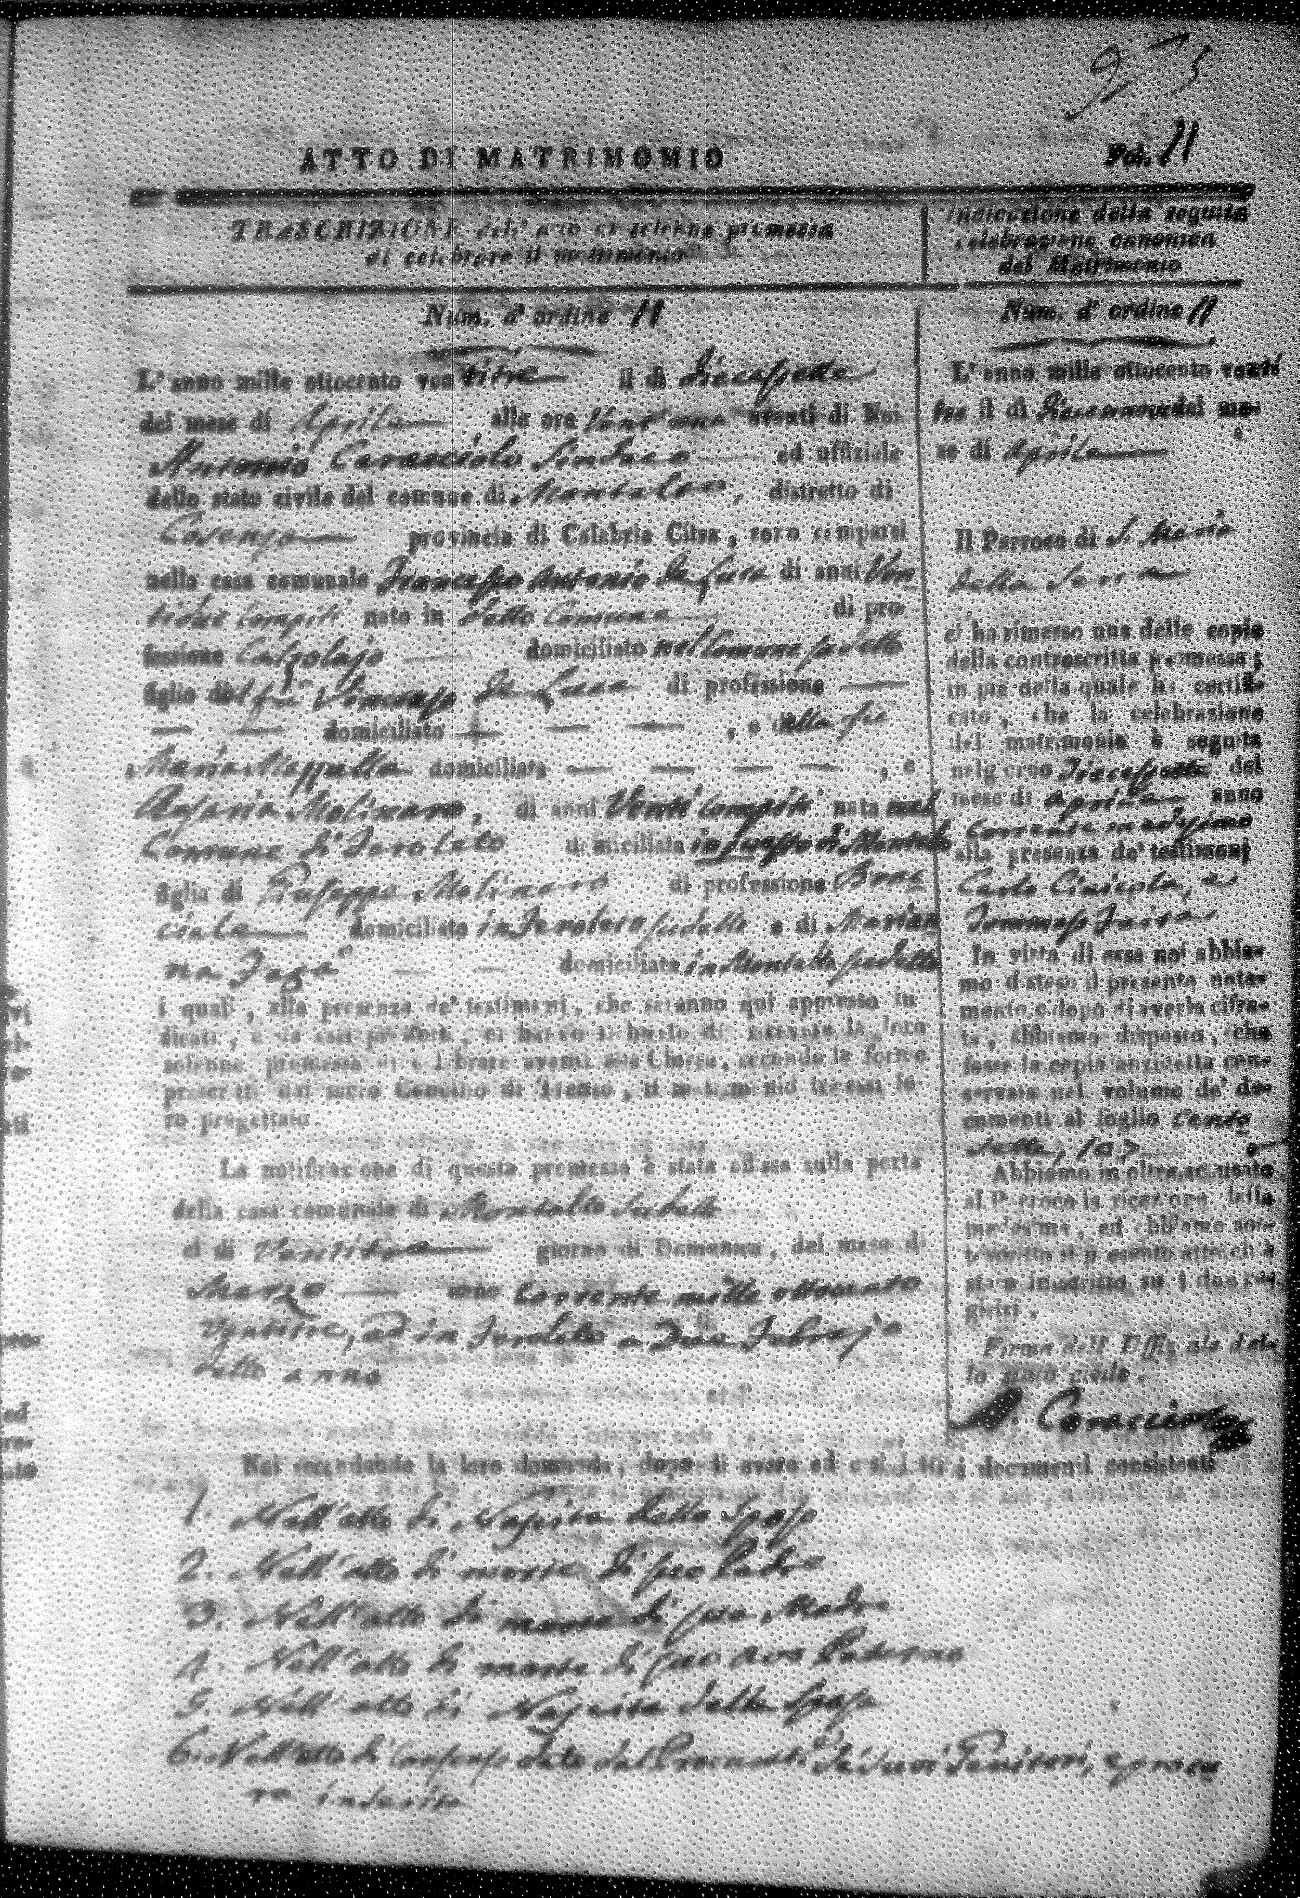 ATTO DI MATRIMONIO
Fol. 11
TRASCRIZIONE dell' atto di solenne promessa
di celebrare il matrimonio
Num. d' ordine 11
L' anno mille ottocento ven titre il di diecessette
del mese di Aprile alle ore avanti di Noi
Antonio Caracciolo Sindaco ed uffiziale
dello stato civile del comune di Montalto, distretto di
Cosenza provincia di Calabria Citra, sono comparsi
nella casa comunale Francesco Antonio De Luca di anni Ven
tidue compiti nato in detto Comune di pro-
fessione Calzolajo domiciliato nel Comune sudetto
figlio del fu Vincenzo De Luca di professione
domiciliato , e della fu
Maria domiciliata , e
Molinaro, di anni Venti compiti nata nel
Comune di Feroleto domiciliata in questo di Montalto
figlia di Giuseppe Molinaro di professione Brac
ciale domiciliato in Feroleto sudetto e di Marian
na domiciliata in Montalto sudetto
i quali, alla presenza de' testimonj, che saranno qui appresso in
dicati, e da essi prodotti, ci hanno richiesto di ricevere la loro
solenne promessa di celebrare avanti alla Chiesa, secondo le forme
prescritte dal sacro Concilio di Trento, il matrimonio tra essi lo-
ro progettato.
La notificazione di questa promessa è stata affissa sulla porta
della casa comunale di Montalto sudetto
el di Ventitre giorno di Domenica, del mese di
Marzo anno corrente mille ottocento
Ventitre, ed in Feroleto a Due Febrajo
detto anno
Noi secondando la loro domanda, dopo di avere ed i documenti consistenti
1. Nell'atto di Nascita dello Sposo
2. Nell'atto di morte di suo Padre
3. Nell'atto di morte di sua Madre
4. Nell'atto di morte di suo avo Paterno
5. Nell'atto di Nascita della Sposa
6. Nell'atto di Consenso dato dal de' suoi Genitori,
Indicazione della seguita
celebrazione canonica
del Matrimonio
Num. d' ordine 11
L' anno mille ottocento venti
tre il di Diecennove del me-
se di Aprile
Il Parroco di S. Maria
della Serra
ci ha rimesso una delle copie
della controscritta promessa;
in piè della quale ha certifi-
cato, che la celebrazione
del matrimonio è seguita
nel giorno Diecessette del
mese di Aprile anno
corrente medesimo
alla presenza de' testimonj
Carlo
Tommaso
In vista di essa noi abbia-
mo disteso il presente nota-
mento e dopo di averla cifra-
ta, abbiamo disposto, che
fosse la copia anzidetta con-
servata nel volume de' do-
cumenti al foglio cento
sette, 107
Abbiamo in oltre accusato
al Parroco la ricezione della
medesima, ed abbiamo sot-
toscritto il presente atto ch' è
stato inscritto su i due re-
gistri.
Firma dell' Uffiziale del-
lo stato civile.
A. Caracciolo